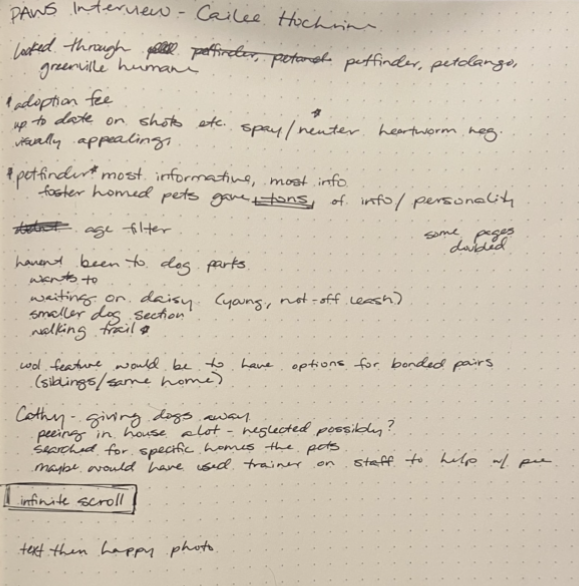 PAWS Interview - Cailee
looked through petfinder, petdango,
greenville humane
* adoption fee
up to date on shots etc. spay/neuter heartworm neg.
visually appealing
* petfinder* most informative, most info
foster homed pets gave tons of info/personality
age filter
some pages
divided
havent been to dog parks
wants to
waiting on daisy (young, not-off leash)
smaller dog section
walking trail
cool feature would be to have options for bonded pairs
(siblings/same home)
Cathy - giving dogs away
peeing in house alot - neglected possibly?
searched for specific homes the pets
maybe would have used trainer on staff to help w/ pee
infinite scroll
text then happy photo